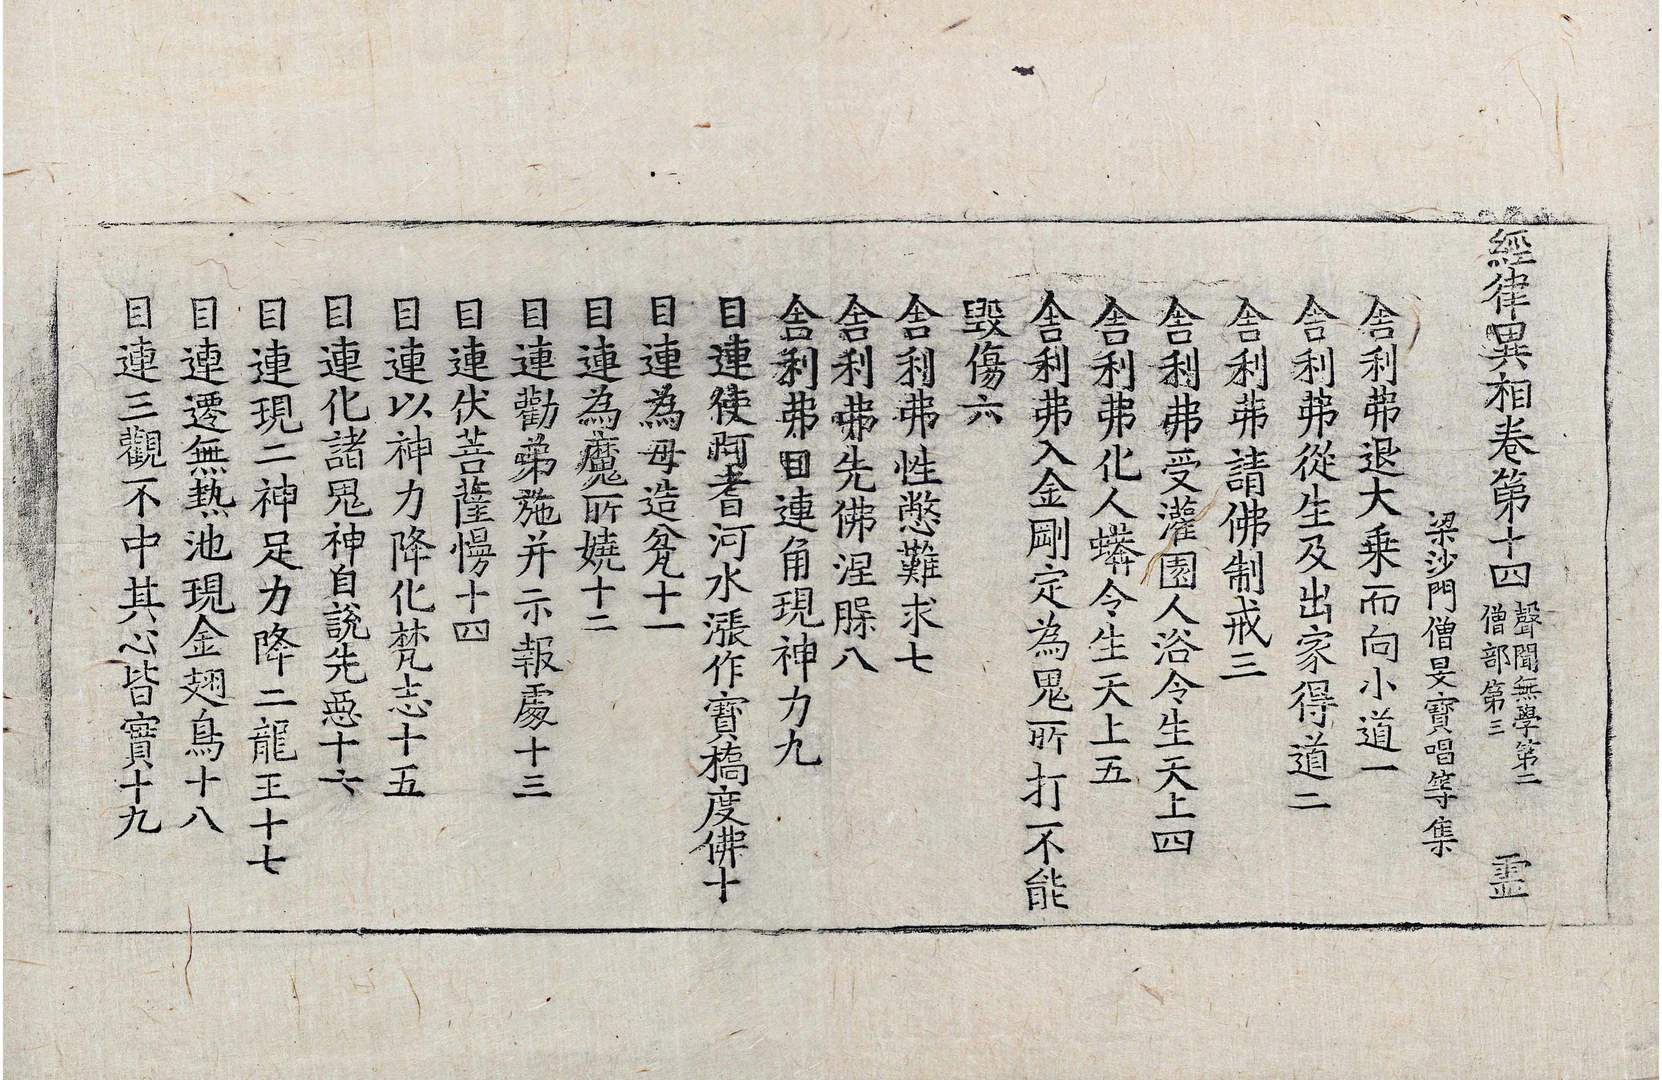 經律異相卷第十四 聲聞無學第二 僧部第三 靈
梁沙門僧旻寶唱等集
舎利弗退大乗而向小道一
舎利弗從生及出家得道二
舎利弗請佛制戒三
舎利弗受灌園人浴令生天上四
舎利弗化人蟒令生天上五
舎利弗入金剛定為鬼所打不能
毀傷六
舎利弗性憋難求七
舎利弗先佛涅槃八
舎利弗目連角現神力九
目連使阿耆河水漲作寶橋度佛十
目連為母造盆十一
目連為魔所嬈十二
目連勸弟施并示報處十三
目連伏菩薩慢十四
目連以神力降化梵志十五
目連化諸鬼神自說先惡十六
目連現二神足力降二龍王十七
目連遷無熱池現金翅鳥十八
目連三觀不中其心皆實十九